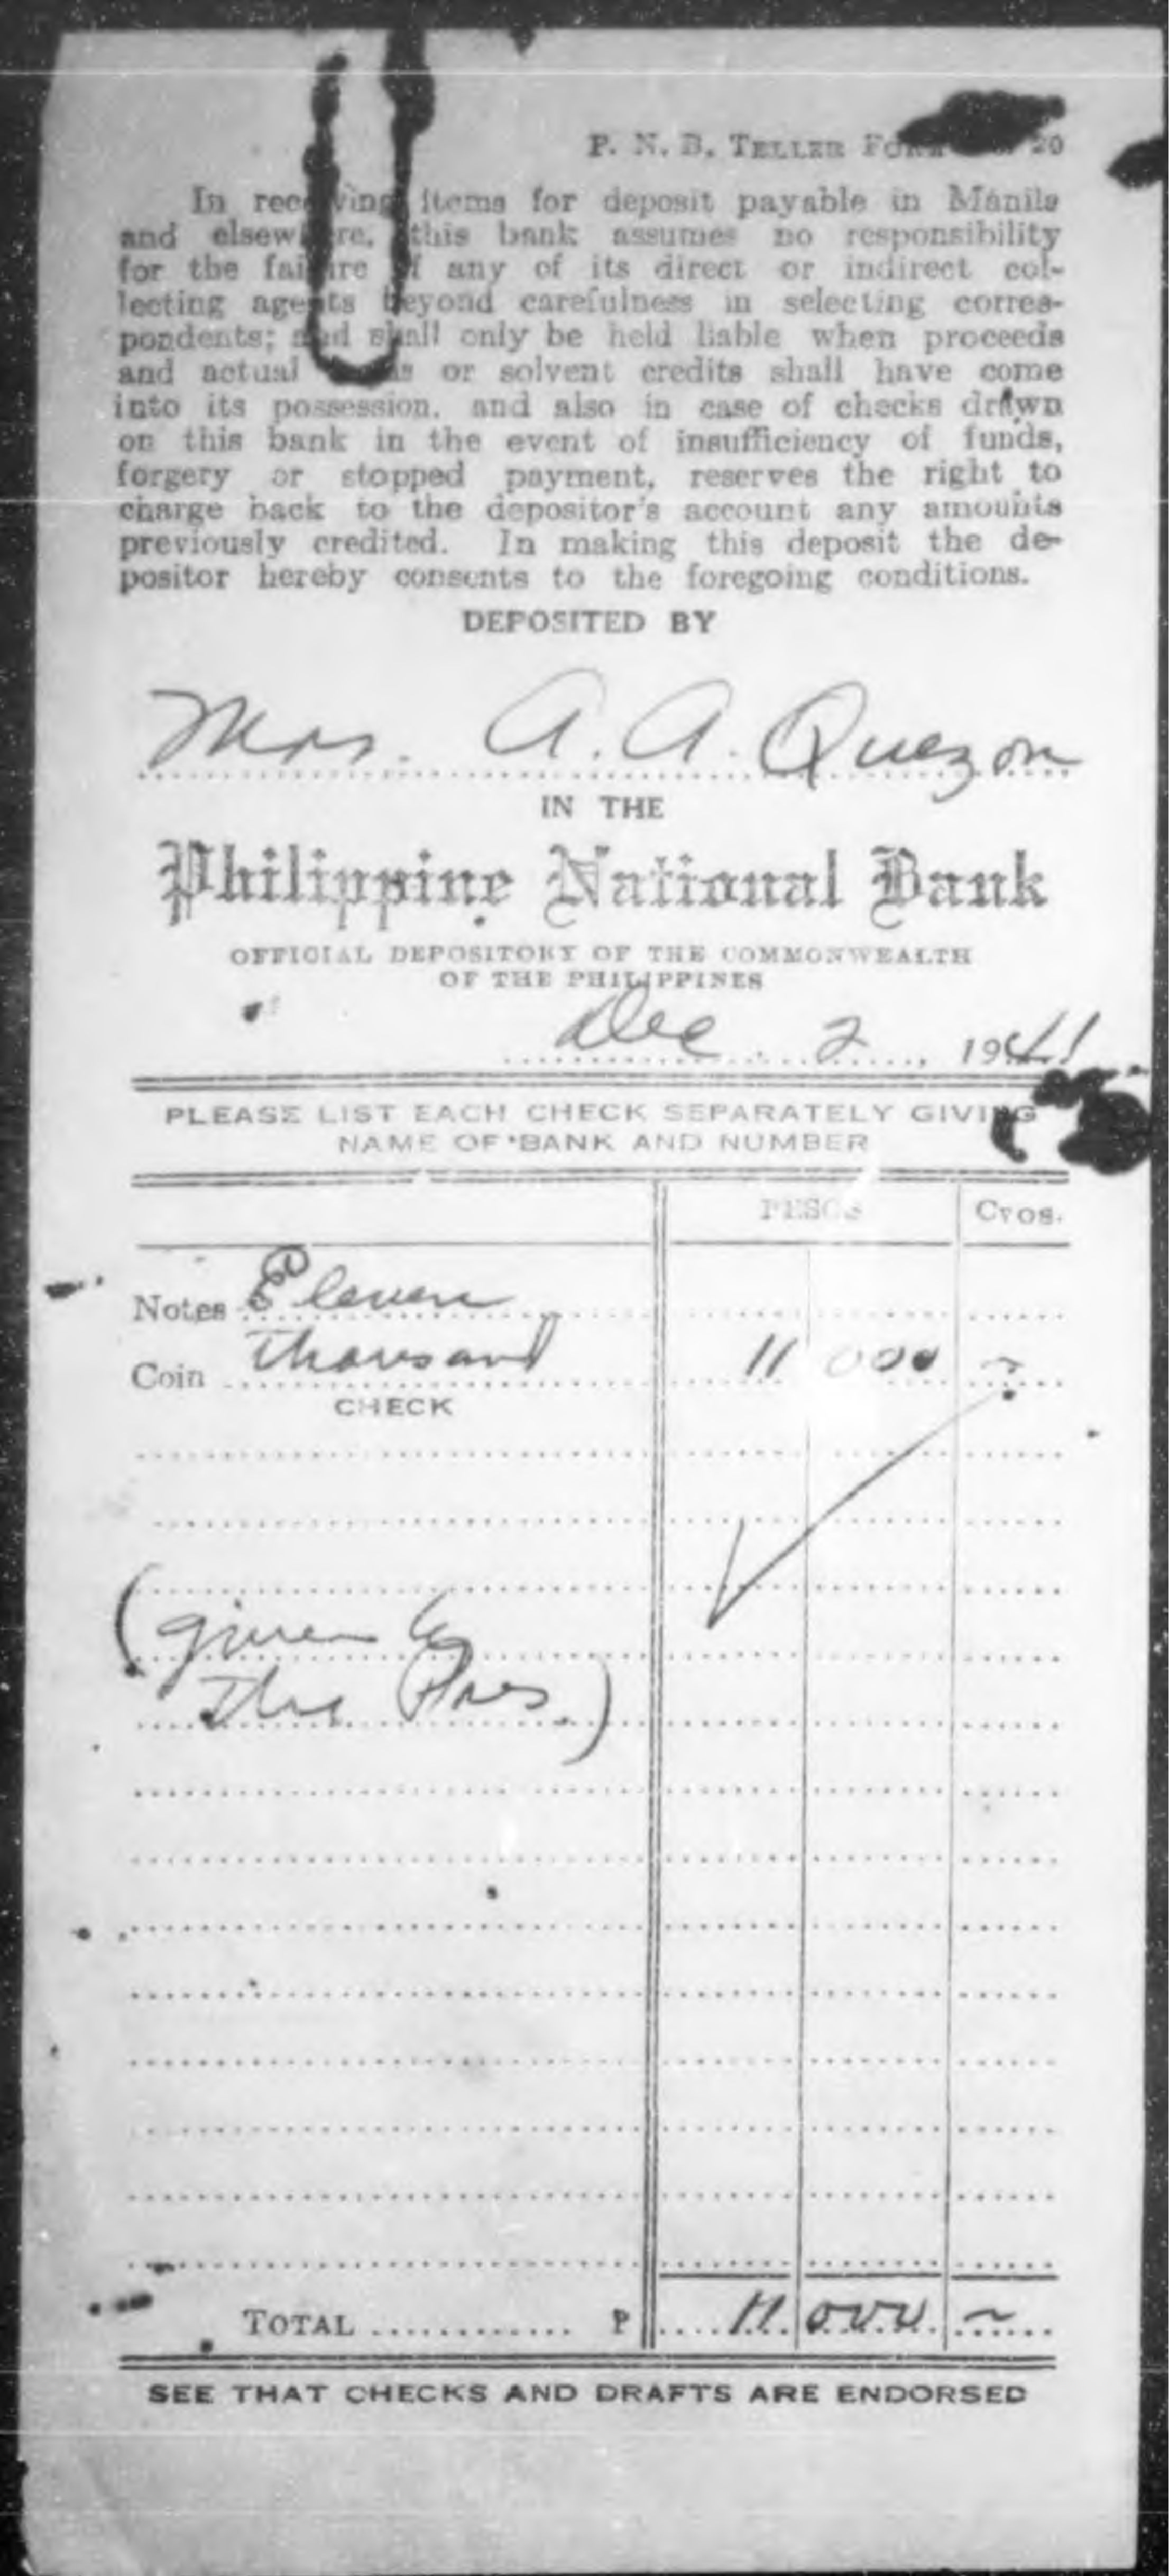 P. N. B. TELLER 20
In receiving items for deposit payable in Manila
and elsewhere, this bank assumes no responsibility
for the failure of any of its direct or indirect col-
lecting agents beyond carefulness in selecting corres-
pondents; and shall only be held liable when proceeds
and actual or solvent credits shall have come
into its possession, and also in case of checks drawn
on this bank in the event of insufficiency of funds,
forgery or stopped payment, reserves the right to
charge back to the depositor's account any amounts
previously credited. In making this deposit the de-
positor hereby consents to the foregoing conditions.
DEPOSITED BY
Mrs. A. A. Quezon
IN THE
Philippine National Bank
OFFICIAL DEPOSITORY OF THE COMMONWEALTH
OF THE PHILIPPINES
Dec. 2, 1941
PLEASE LIST EACH CHECK SEPARATELY GIVING
NAME OF BANK AND NUMBER
PESOS Cvos.
Notes Eleven
Coin thousand 11 000 ~
CHECK
(given by
The Pres.)
TOTAL ............ ₱ 11 000 ~
SEE THAT CHECKS AND DRAFTS ARE ENDORSED